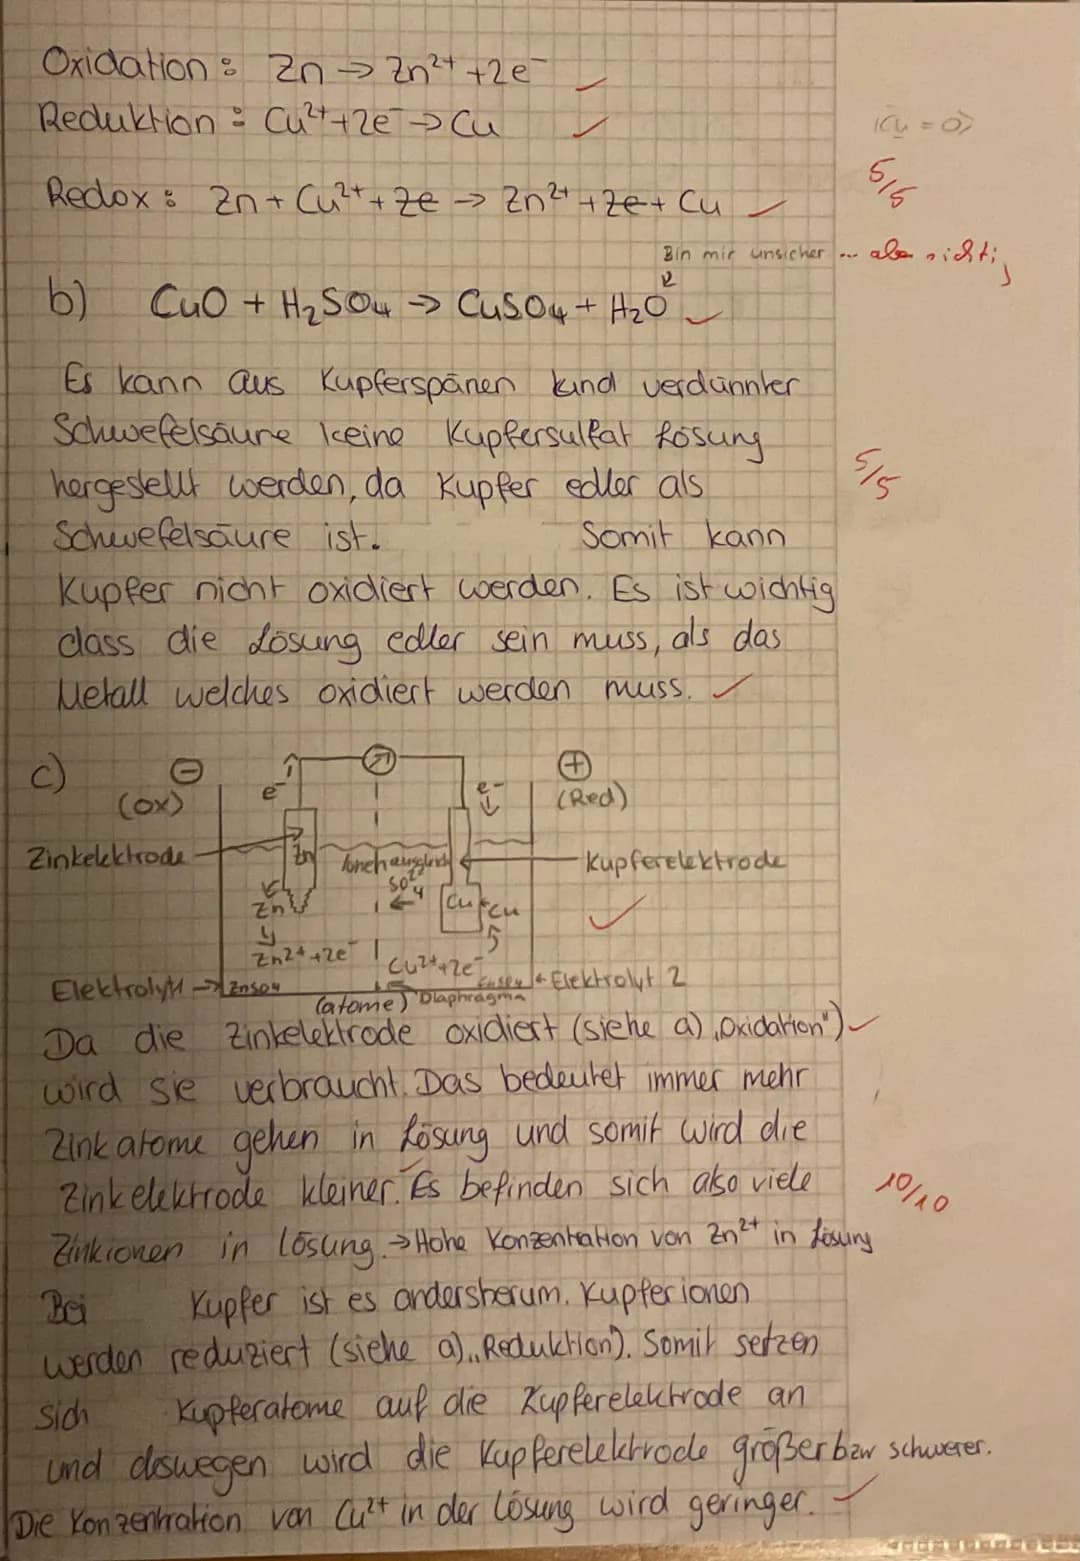 Oxidation: Zn → Zn²⁺ + 2e⁻
Reduktion: Cu²⁺ + 2e⁻ → Cu
(Cu = 0)
5/5
Redox: Zn + Cu²⁺ + 2e → Zn²⁺ + 2e + Cu
Bin mir unsicher ... aber richtig
b) CuO + H₂SO₄ → CuSO₄ + H₂O
Es kann aus Kupferspänen und verdünnter
Schwefelsäure keine Kupfersulfat Lösung
hergestellt werden, da Kupfer edler als
5/5
Schwefelsäure ist. Somit kann
Kupfer nicht oxidiert werden. Es ist wichtig
dass die Lösung edler sein muss, als das
Metall welches oxidiert werden muss.
c) ⊖ ⊕
(ox) e⁻ e⁻ (Red)
Zinkelektrode Zn Ionenausgleich Kupferelektrode
SO₄²⁻
Zn Cu Cu
Zn²⁺ + 2e⁻ Cu²⁺ + 2e⁻
Elektrolyt 1 → ZnSO₄ CuSO₄ ← Elektrolyt 2
(atome) Diaphragma
Da die Zinkelektrode oxidiert (siehe a) „Oxidation")
wird sie verbraucht. Das bedeutet immer mehr
Zinkatome gehen in Lösung und somit wird die
Zinkelektrode kleiner. Es befinden sich also viele
10/10
Zinkionen in Lösung. → Hohe Konzentration von Zn²⁺ in Lösung
Bei Kupfer ist es andersherum. Kupferionen
werden reduziert (siehe a) „Reduktion). Somit setzen
sich Kupferatome auf die Kupferelektrode an
und deswegen wird die Kupferelektrode größer bzw schwerer.
Die Konzentration von Cu²⁺ in der Lösung wird geringer.